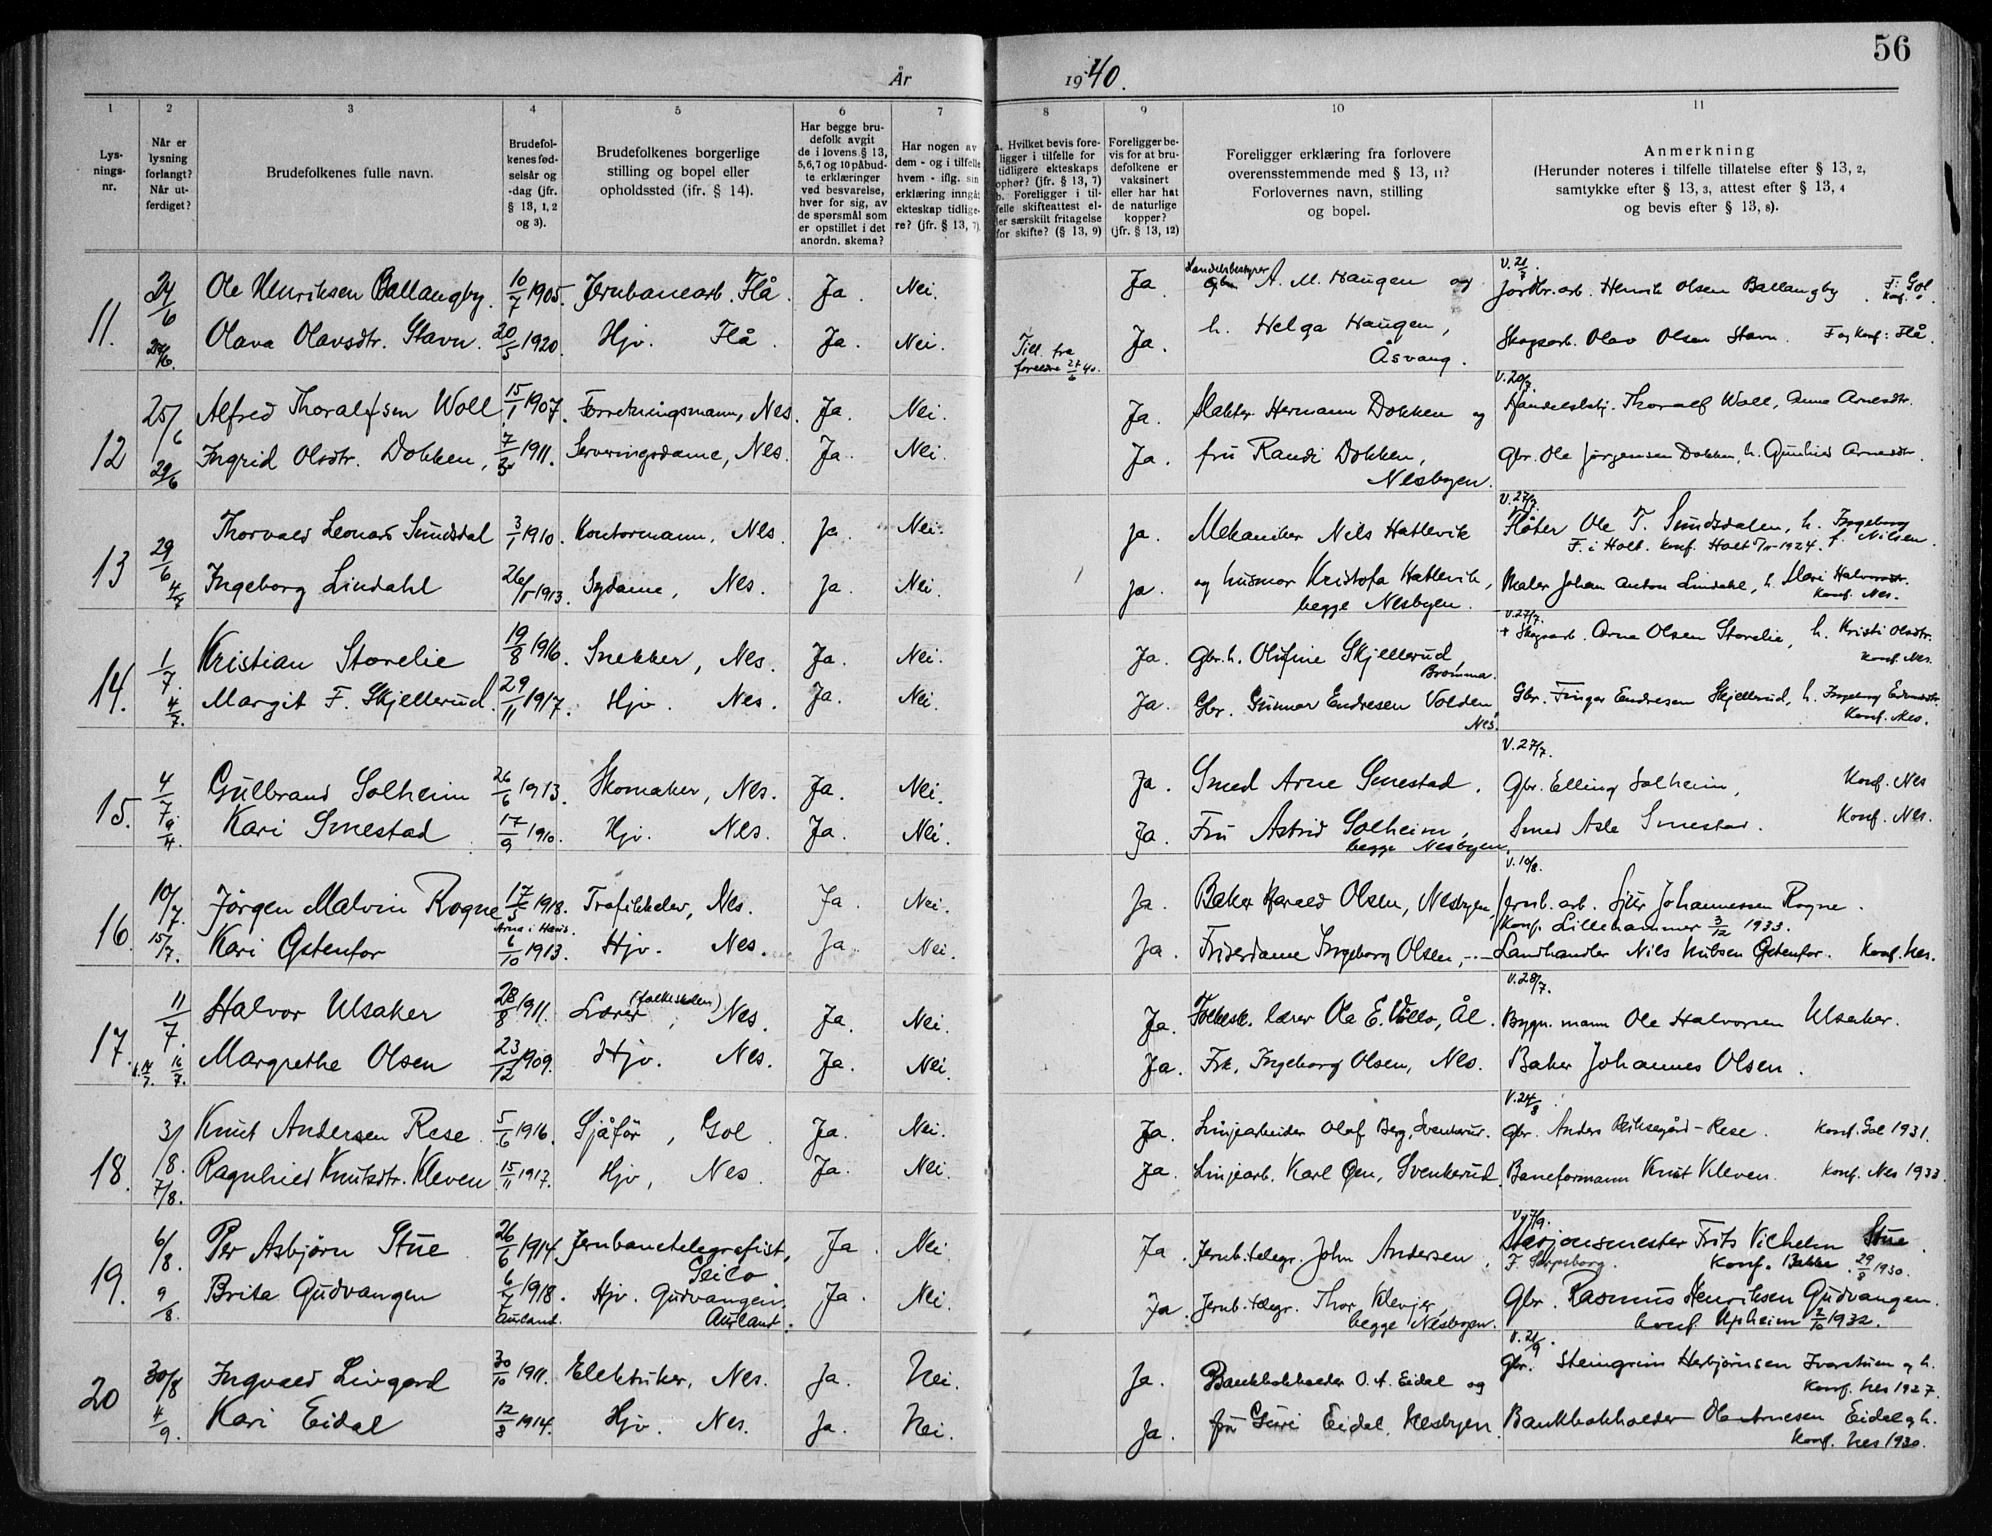 56
År 1940.
1 2 3 4 5 6 7 8 9 10 11
Lys-
nings-
nr.
Når er
lysning
forlangt?
Når ut-
ferdiget?
Brudefolkenes fulle navn.
Brudefol-
kenes fød-
selsår og
-dag (jfr.
§ 13, 1, 2
og 3).
Brudefolkenes borgerlige
stilling og bopel eller
opholdssted (ifr. § 14).
Har begge bru-
defolk avgit
de i lovens § 13,
5, 6, 7 og 10 påbud-
te erklæringer
ved besvarelse,
hver for sig, av
de spørsmål som
er opstillet i det
anordn. skema?
Har nogen av
dem - og i tilfelle
hvem - iflg. sin
erklæring inngåt
ekteskap tidlige-
re? (jfr. § 13, 7)
a. Hvilket bevis fore-
ligger i tilfelle for
tidligere ekteskaps
ophør? (jfr. § 13, 7)
b. Foreligger i til-
felle skifteattest el-
ler særskilt fritagelse
for skifte? (§ 13, 9)
Foreligger be-
vis for at bru-
defolkene er
vaksinert
eller har hat
de naturlige
kopper?
(jfr. § 13, 12)
Foreligger erklæring fra forlovere
overensstemmende med § 13, 11?
Forlovernes navn, stilling
og bopel.
Anmerkning
(Herunder noteres i tilfelle tillatelse efter § 13, 2,
samtykke efter § 13, 3, attest efter § 13, 4
og bevis efter § 13, 8).
11. 24/6 Ole Henriksen Ballangby. 10/7 1905. Jernbanearb. Flå. Ja. Nei. Ja. Handelsbestyrer A. M. Haugen og V. 21/7. Jordbr. arb. Henrik Olsen Ballangby. F. Gol. Konf. "
Olava Olavsdtr. Stavn. 20/5 1920. Hjv. Flå. Ja. Nei. Till. fra foreldre 27/6 40. Ja. h. Helga Haugen, Åsvang. Skogsarb. Olav Olsen Stavn. F og Konf: Flå.
12 25/6 Alfred Thoralfsen Woll 15/1 1907. Forretningsmann, Nes. Ja. Nei. Ja. Slakter Hermann Dokken og V. 20/7. Handelsbetj. Thoralf Woll, Anna Arnesdtr.
29/6 Ingrid Olsdtr. Dokken, 1911. Serveringsdame, Nes. Ja. Nei. Ja. fru Randi Dokken, Nesbyen. Gbr. Ole Jørgensen Dokken, h. Gunhild Arnesdtr.
13 29/6 Thorvald Leonard Sundsdal 3/1 1910. Kontormann, Nes. Ja. Nei. Ja. Mekaniker Nils Hatlevik V. 27/7. Fløter Ole T. Sundsdalen, h. Ingeborg f. Nilsen. F. i Holt. Konf. Holt 1924.
4/7 Ingeborg Lindahl 26/5 1913. Sydame, Nes. Ja. Nei. Ja. og husmor Kristofa Hatlevik, begge Nesbyen. Maler Johan Anton Lindahl, h. Mari Halvorsdtr. Konf. Nes.
14. 1/7. Kristian Storelie 19/8 1916. Snekker, Nes. Ja. Nei. Ja. Gbr. h. Olufine Skjellerud, Bromma. V. 27/7. + Skogsarb. Arne Olsen Storelie, h. Kristi Olsdtr. Konf. Nes.
4/7. Margit F. Skjellerud. 29/11 1917. Hjv. Nes. Ja. Nei. Ja. Gbr. Gunnar Endresen Volden, Nes. Gbr. Fingar Endresen Skjellerud, h. Ingeborg Konf. Nes.
15. 4/7 Gulbrand Solheim 26/6 1913. Skomaker, Nes. Ja. Nei. Ja. Smed Arne Smestad. V. 27/7. Gbr. Elling Solheim, Konf. Nes
Kari Smestad 17/9 1910. Hjv. Nes. Ja. Nei. Ja. Fru Astrid Solheim, begge Nesbyen. Smed Asle Smestad. Konf. Nes.
16. 10/7. Jørgen Malvin Rogne 17/5 1918. Arna i Haus. Trafikkelev, Nes. Ja. Nei. Ja. Baker Harald Olsen, Nesbyen, V. 10/8. Jernb. arb. Sjur Johannessen Rogne. Konf. Lillehammer 3/12 1933.
15/7. Kari Østenfor 6/10 1913. Hjv. Nes. Ja Nei. Ja. Friserdame Ingeborg Olsen, -"- Landhandler Nils Nubsen Østenfor. Konf. Nes.
17. 11/7. Halvor Ulsaker 28/8 1911. Lærer (folkeskolen), Nes. Ja. Nei. Ja. Folkesk. lærer Ola E. Villo, Ål. V. 28/7. Bygn. mann Ole Halvorsen Ulsaker.
16/7. Margrethe Olsen 23/12 1909. Hjv. Nes. Ja. Nei. Ja. Frk. Ingeborg Olsen, Nes. Baker Johannes Olsen.
18. 3/8. Knut Andersen Rese. 5/6 1916. Sjåfør, Gol. Ja. Nei. Ja. Linjearbeider Olaf Berg, Svenkerud. V. 24/8. Gbr. Anders Rese. Konf. Gol 1931.
7/8. Ragnhild Knutsdtr. Kleven. 15/11 1917. Hjv, Nes. Ja. Nei. Ja. Linjearb. Karl Øen, Svenkerud. Baneformann Knut Kleven. Konf. Nes 1933.
19. 6/8. Per Asbjørn Stue 26/6 1914. Jernbanetelegrafist, Geilo. Ja. Nei. Ja. Jernb. telegr. John Andersen, V. 7/9. Stasjonsmester Frits Vilhelm Stue. F. Sarpsborg. Konf. Bakke. 29/8 1930.
9/8. Brita Gudvangen 1918. Aurland. Hjv. Gudvangen, Aurland. Ja. Nei. Ja. Jernb. telegr. Thor Klevjer, begge Nesbyen. Gbr. Rasmus Henriksen Gudvangen. konf. Upheim 2/10 1932.
20 30/8 Ingvald Livgard 30/10 1911. Elektriker, Nes. Ja. Nei. Ja. Bankbokholder O. A. Eidal og V. 21/9. Gbr. Steingrim Herbjørnsen Ivarstuen og h. Konf. Nes 1927.
4/9. Kari Eidal 12/8 1914. Hjv. Nes. Ja. Nei. Ja. fru Guri Eidal, Nesbyen. Bankbokholder Ole Arnesen Eidal og h. Konf. Nes 1930.